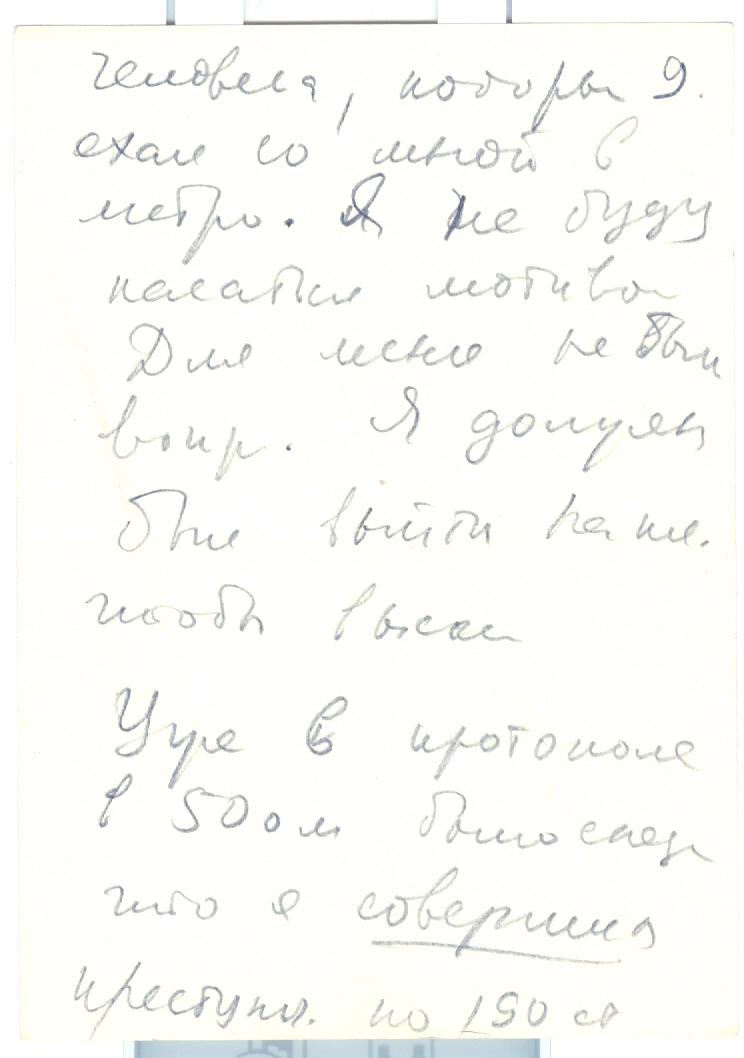 человека, которы 9.
ехал со мной в
метро. Я не буду
касаться мотиво
Для меня не был
вопр. Я должен
был выйти
чтобы выска
Уже в протоколе
в 50 ом было
что я совершил
преступл. по 190 ст